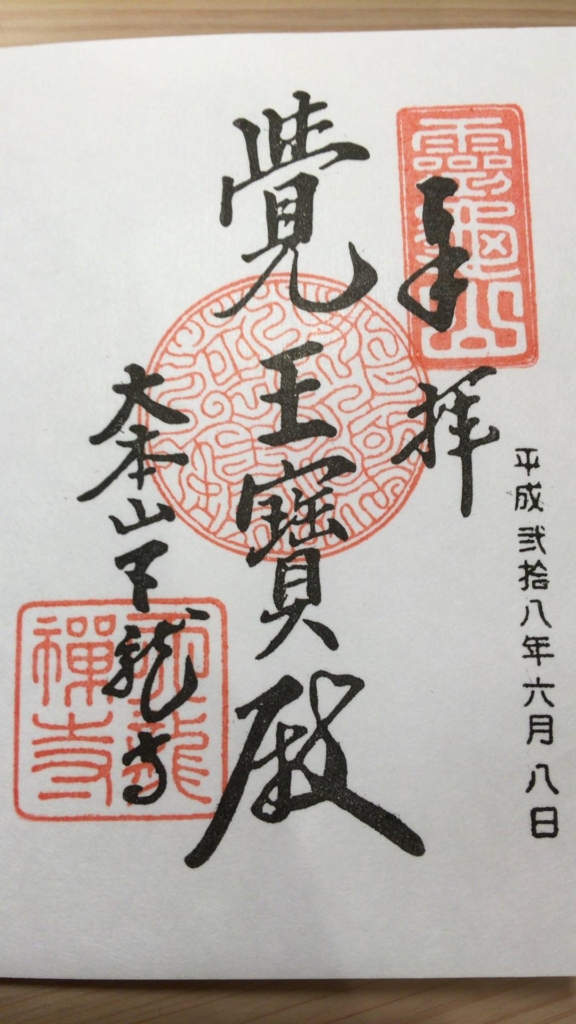 平成弐拾八年六月八日
奉拝
靈龜山
覺王寶殿
大本山天龍寺
天龍禪寺